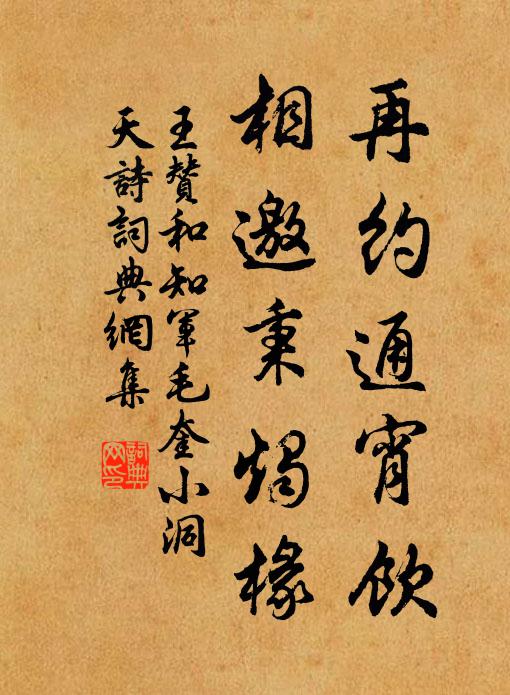 再约通宵飲
相邀秉燭椽
王贊和知軍毛奎小洞
天詩詞典網集
詞典
网印